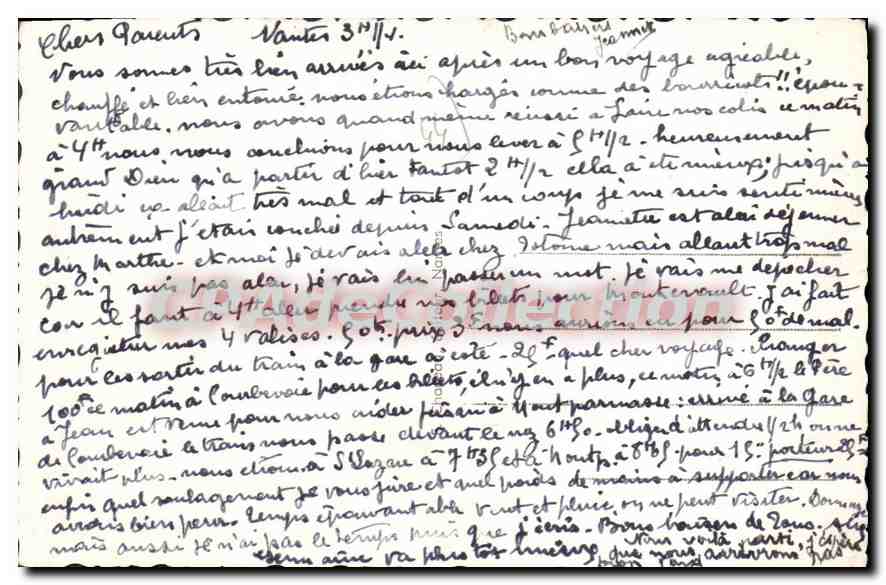 Chers Parents Nantes 3H1/2. Bons baisers Jeannette
Nous sommes très bien arrivés ici après un bon voyage agréable,
chauffé et bien entouré. nous étions chargés comme des bourricots!! épou-
vantable. nous avons quand même réussi à faire nos colis ce matin
à 4H nous nous couchions pour nous lever à 5H1/2. heureusement
grand Dieu qu'à partir d'hier tantôt 2H1/2 cella à été mieux. jusqu'à
lundi ça allait très mal et tout d'un coup je me suis sentie mieux
autrement j'étais couchée depuis Samedi. Jeannette est alai déjeuner
chez Marthe. et moi je devais aller chez mais allant trop mal
je n'y suis pas alai, je vais lui passer un mot. je vais me dépecher
car il faut à 4H aler prendre nos billets pour Montrevault. J'ai fait
enregistrer mes 4 valises. 50k. prix 3 nous aurions eu pour 50F de mal.
pour les sortir du train à la gare à coté 25F quel cher voyage. changer
100F ce matin à Courbevoie pour les billets, il n'y en a plus, ce matin à 6H1/2 le Père
à Jean est venu pour nous aider jusqu'à Montparnasse: arrivé à la Gare
de Courbevoie le train nous passe devant le nez 6H50. obligé d'attendre 1/2h on ne
vivait plus. nous étions à St Lazare à 7H35 et à Montp. à 8H5 pour 15 porteur 25F
enfin quel soulagement je vous jure et quel poids de moins à supporter car nous
avions bien peur. Temps épouvantable vent et pluie, on ne peut visiter. Dommage
mais aussi je n'ai pas le temps puis que j'écris. Bons baisers de Tous.
Nous voilà parti, j'espère
va plus tôt mieux, que nous arriverons pas
CPA Collection